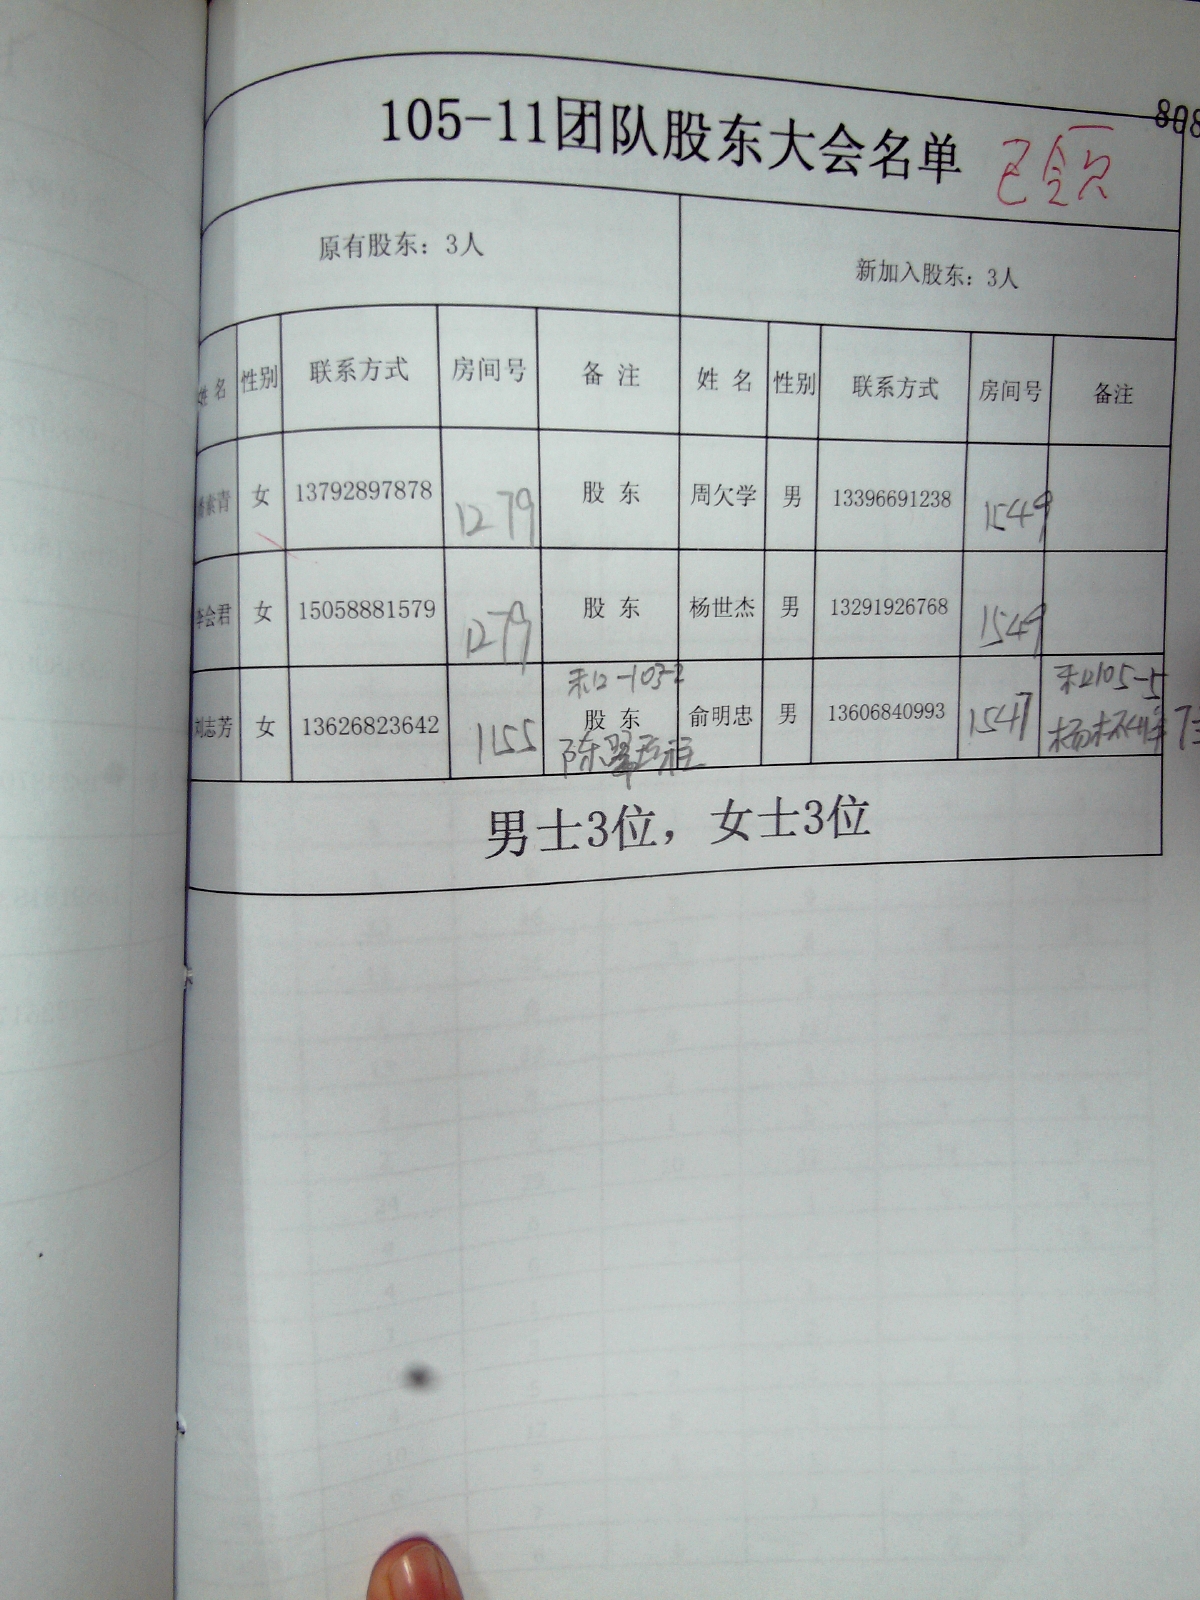 808
105-11团队股东大会名单 已领
原有股东：3人 新加入股东：3人
姓 名 性别 联系方式 房间号 备 注 姓 名 性别 联系方式 房间号 备注
素青 女 13792897878 1279 股 东 周欠学 男 13396691238 1549
李会君 女 15058881579 1279 股 东 杨世杰 男 13291926768 1549
刘志芳 女 13626823642 1155 股 东 俞明忠 男 13606840993 1547
男士3位，女士3位